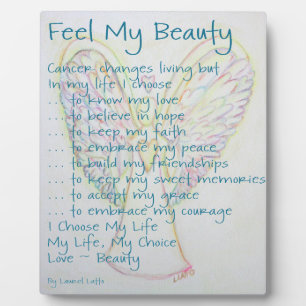 Feel My Beauty
Cancer changes living but
In my life I choose
... to know my love
... to believe in hope
... to keep my faith
... to embrace my peace
... to build my friendships
... to keep my sweet memories
... to accept my grace
... to embrace my courage
I Choose My Life
My Life, My Choice
Love ~ Beauty
By Laurel Latto
LATTO